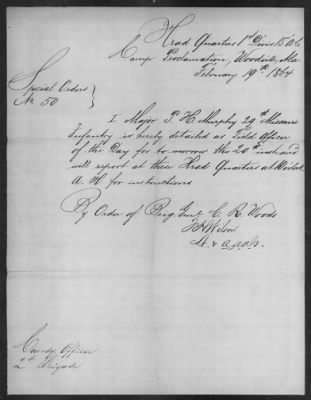 Head Quarters 1st Divis 15 A.C.
Camp Proclamation, Woodville, Ala
February 19th 1864
Special Orders
No. 50
I Major P. H. Murphy 29th Missouri
Infantry is hereby detailed as Field Officer
of the Day for to morrow the 20th inst and
will report at these Head Quarters at
A. M. for instructions
By Order of Brig Genl C. R. Woods
Wilson
A. A. A. G.
Comdg Officer
2d Brigade